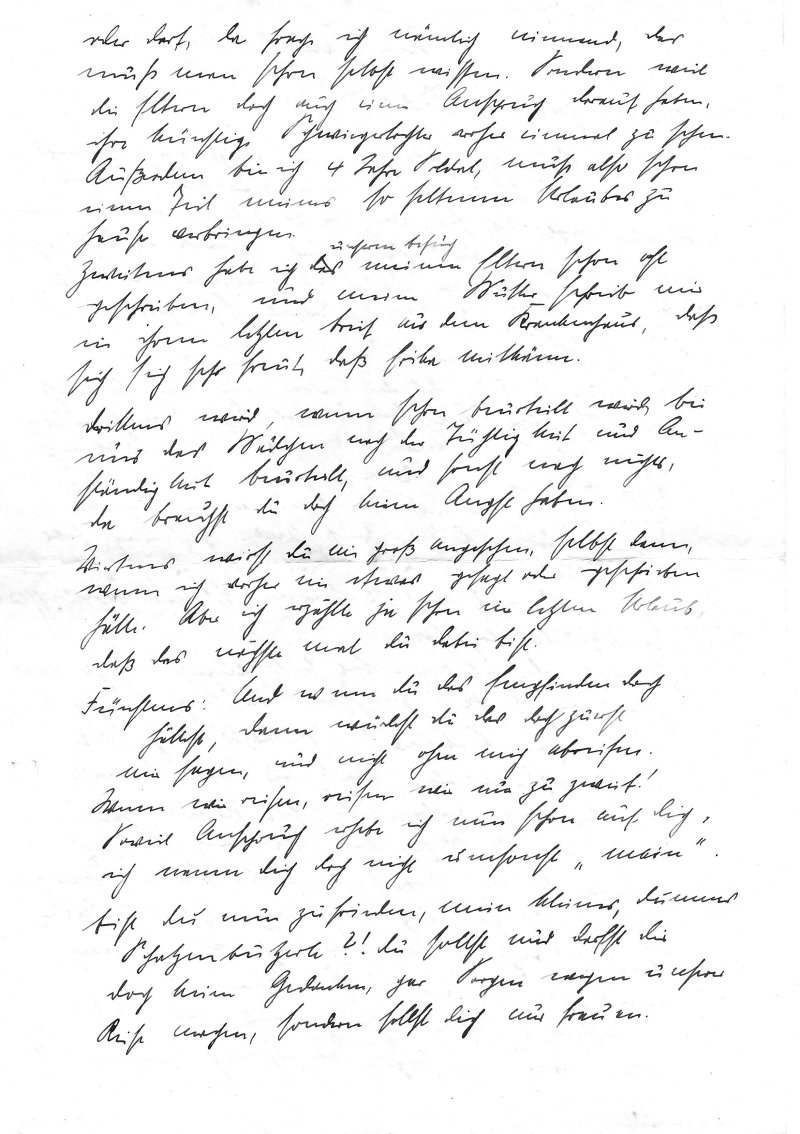 oder darf, da frage ich nämlich niemand, das
muß man schon selbst wissen. Sondern weil
die Eltern doch auch einen Anspruch darauf haben,
ihre künftige Schwiegertochter vorher einmal zu sehen.
Außerdem bin ich 4 Jahre Soldat, muß also schon
einen Teil meines so seltenen Urlaubes zu
Hause verbringen.
unseren Besuch
Zweitens habe ich das meinen Eltern schon oft
geschrieben, und meine Mutter schrieb mir
in ihrem letzten Brief aus dem Krankenhaus, daß
sie sich sehr freut, daß Erika mitkäme.
Drittens wird, wenn schon beurteilt wird, bei
uns das Mädchen nach der Tüchtigkeit und An-
ständigkeit beurteilt, und sonst nach nichts,
da brauchst du doch keine Angst haben.
Viertens wirst du nie groß angesehen, selbst dann,
wenn ich vorher nie etwas gesagt oder geschrieben
hätte. Aber ich erzählte ja schon im letzten Urlaub,
daß das nächste mal du dabei bist.
Fünftens: Und wenn du das Empfinden doch
hättest, dann würdest du das doch zuerst
mir sagen, und nicht ohne mich abreisen.
Wenn wir reisen, reisen wir nur zu zweit!
Soviel Anspruch erhebe ich nun schon auf dich,
ich nenne dich doch nicht umsonst „mein“.
Bist du nun zufrieden, mein kleines, dummes
Schatzenbutzerle?! Du sollst und darfst dir
doch keine Gedanken, gar Sorgen wegen unserer
Reise machen, sondern sollst dich nur freuen.